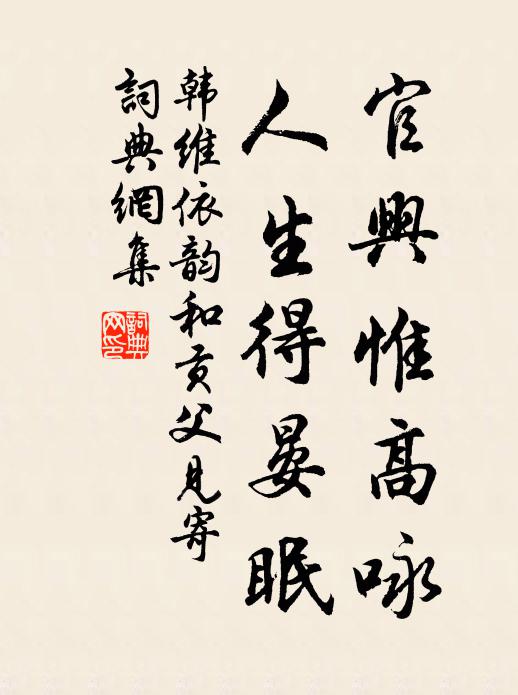 官興惟高咏
人生得晏眠
韩维依韵和贡父见寄
詞典網集
詞典網印